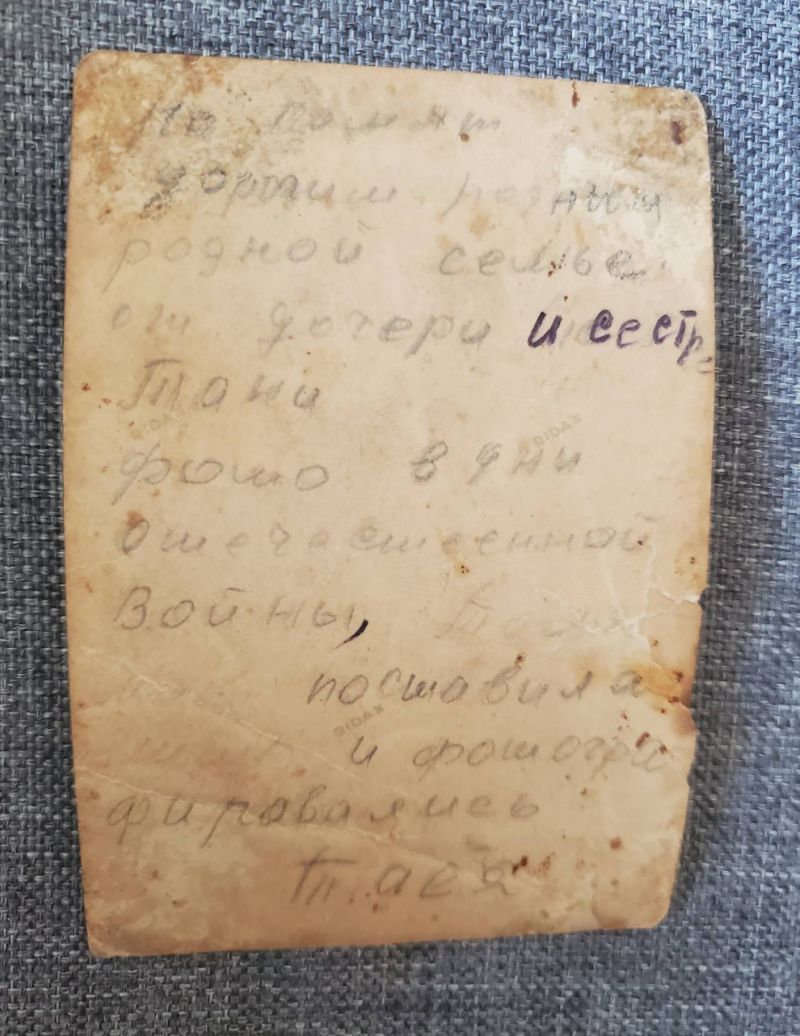 На Памят
дорогим родным
родной семье
от дочери и сестр
Тани
фото в дни
отечественной
Войны,
поставила
и фотогра
фировались
Тася
RIDAX
RIDAX
RIDAX